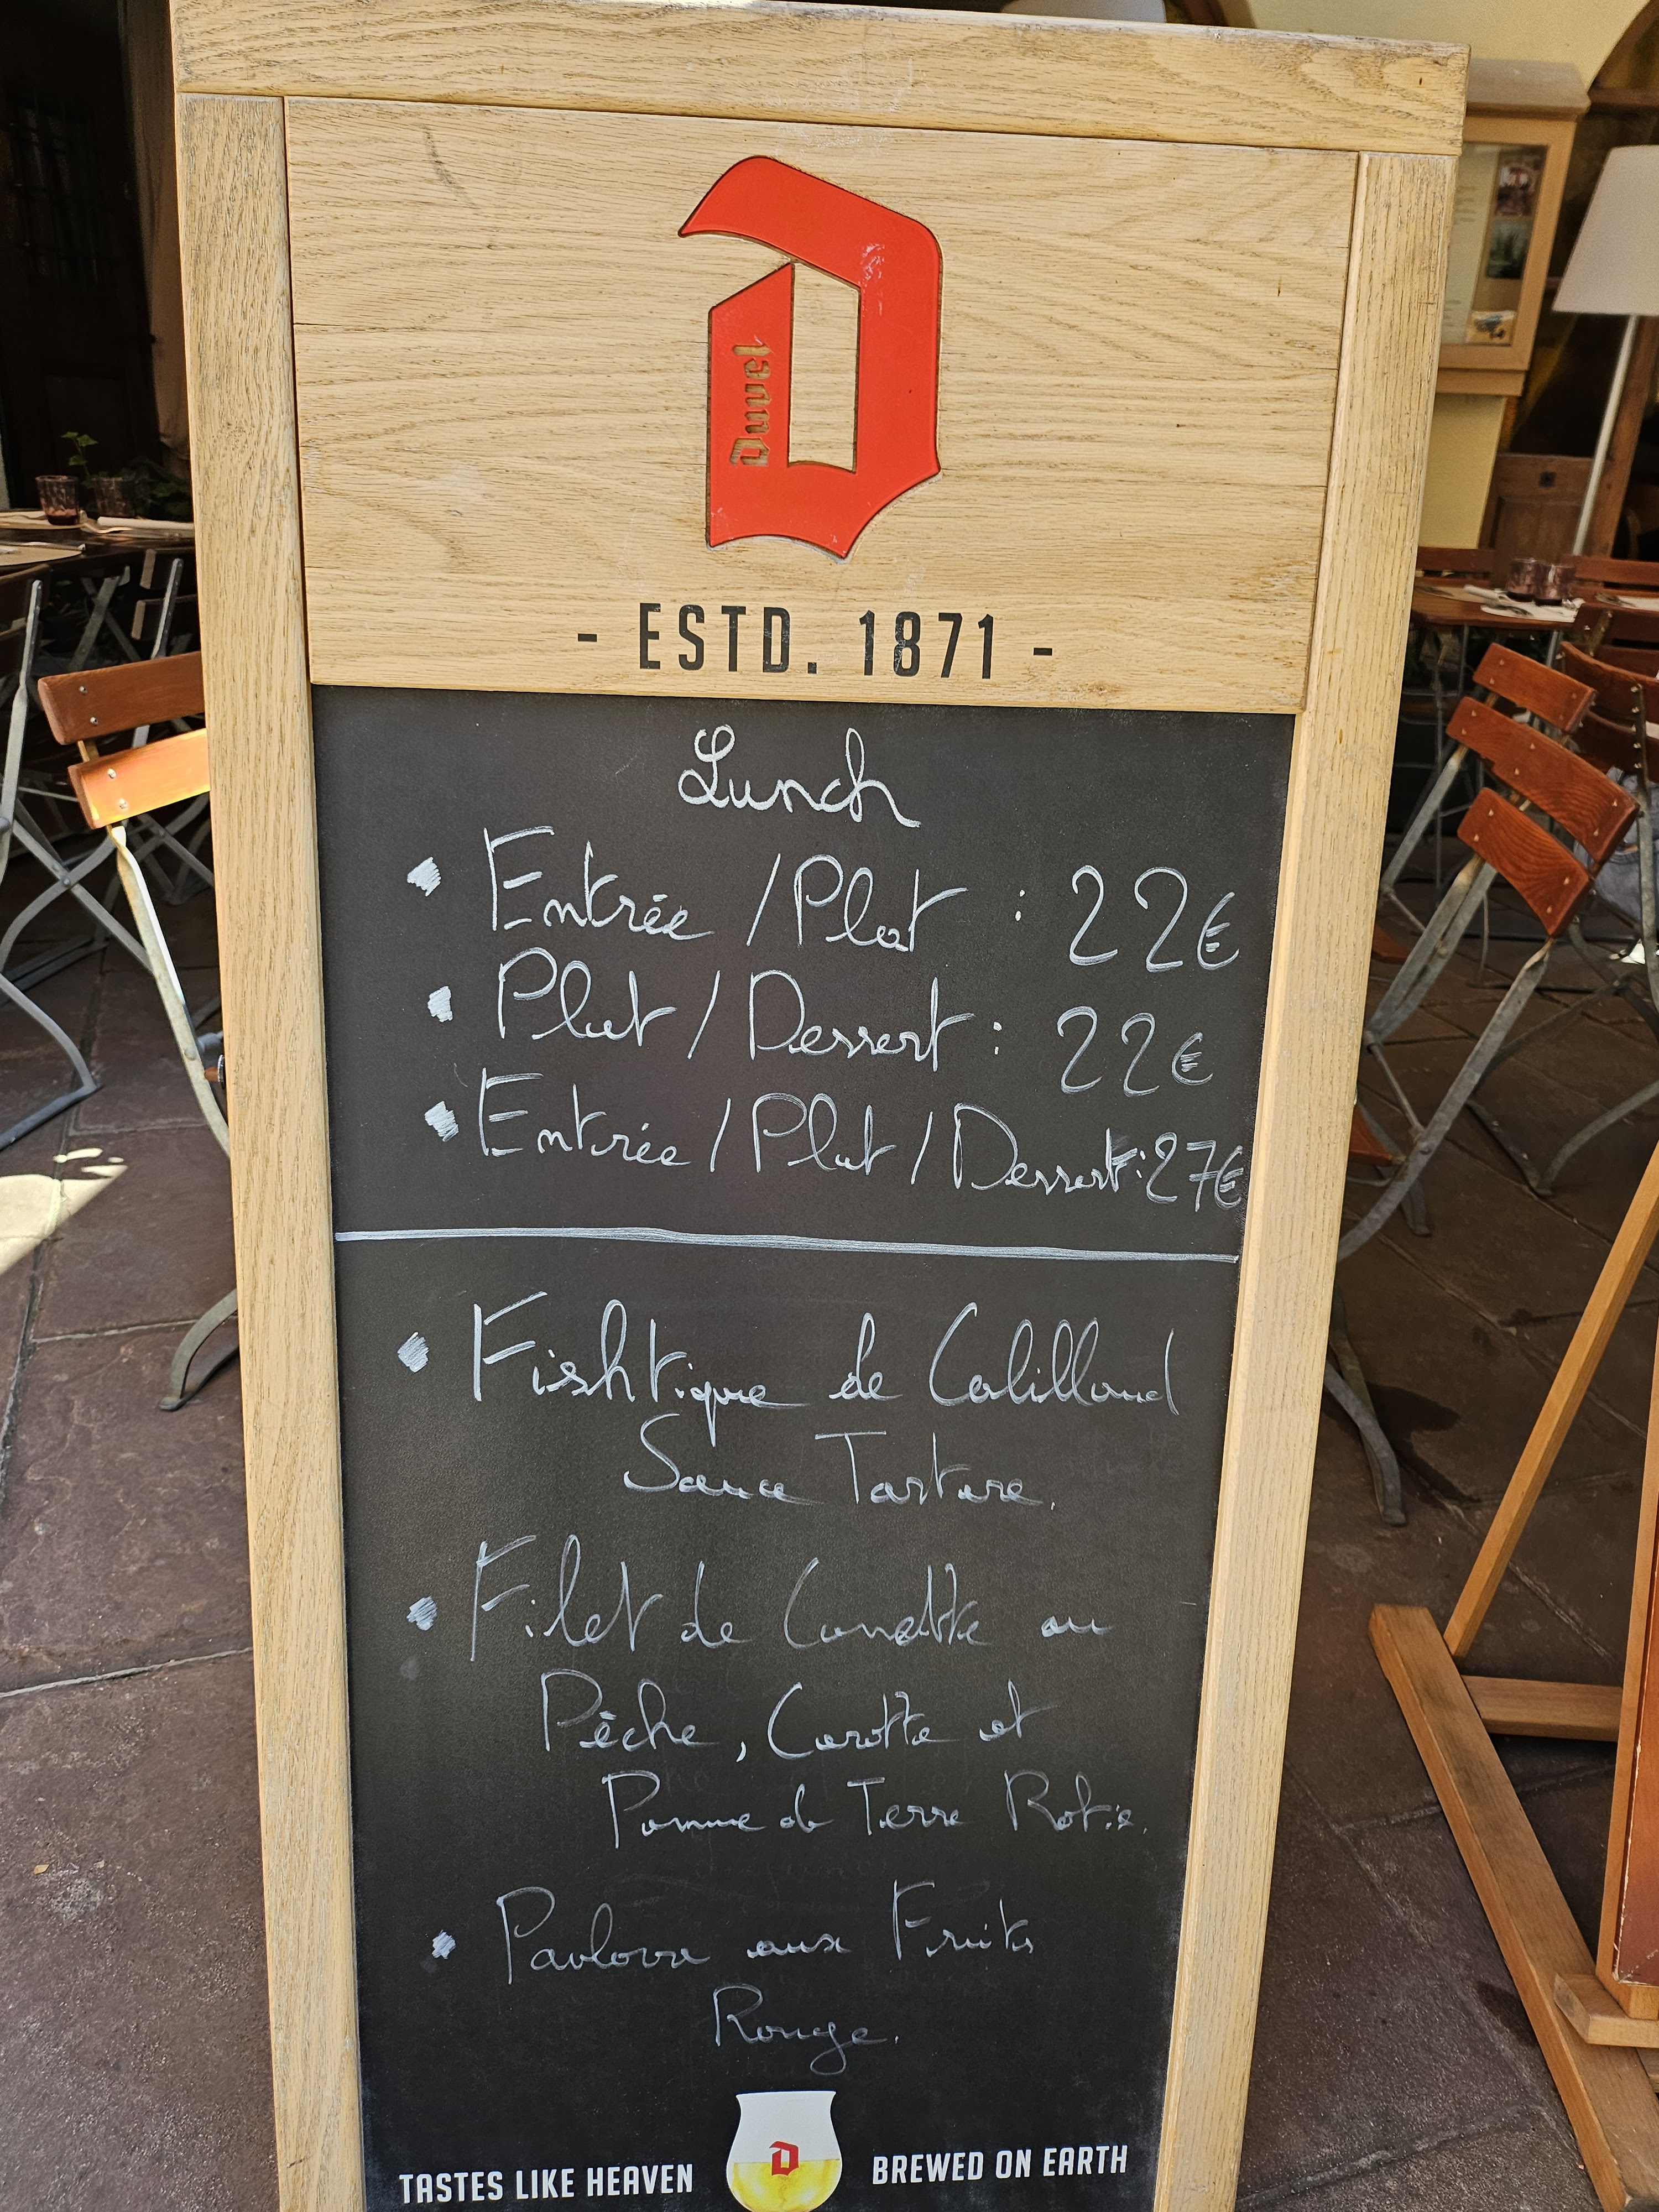 Duvel
- ESTD. 1871 -
Lunch
Entrée / Plat : 22€
Plat / Dessert : 22€
Entrée / Plat / Dessert : 27€
Fishtique de Cabillaud
Sauce Tartare.
Filet de Canette au
Pêche, Carotte et
Pomme de Terre Rotie.
Pavlova aux Fruits
Rouge.
TASTES LIKE HEAVEN BREWED ON EARTH